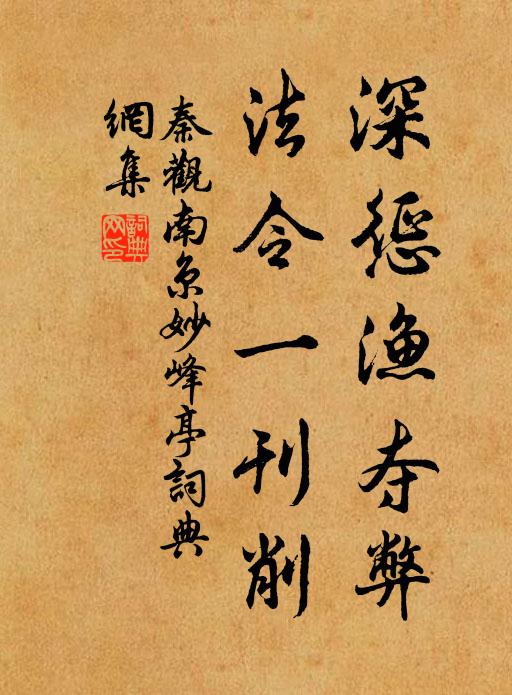 深惩渔夺弊
法令一刊削
秦觀南京妙峰亭詞典
網集
詞典網印